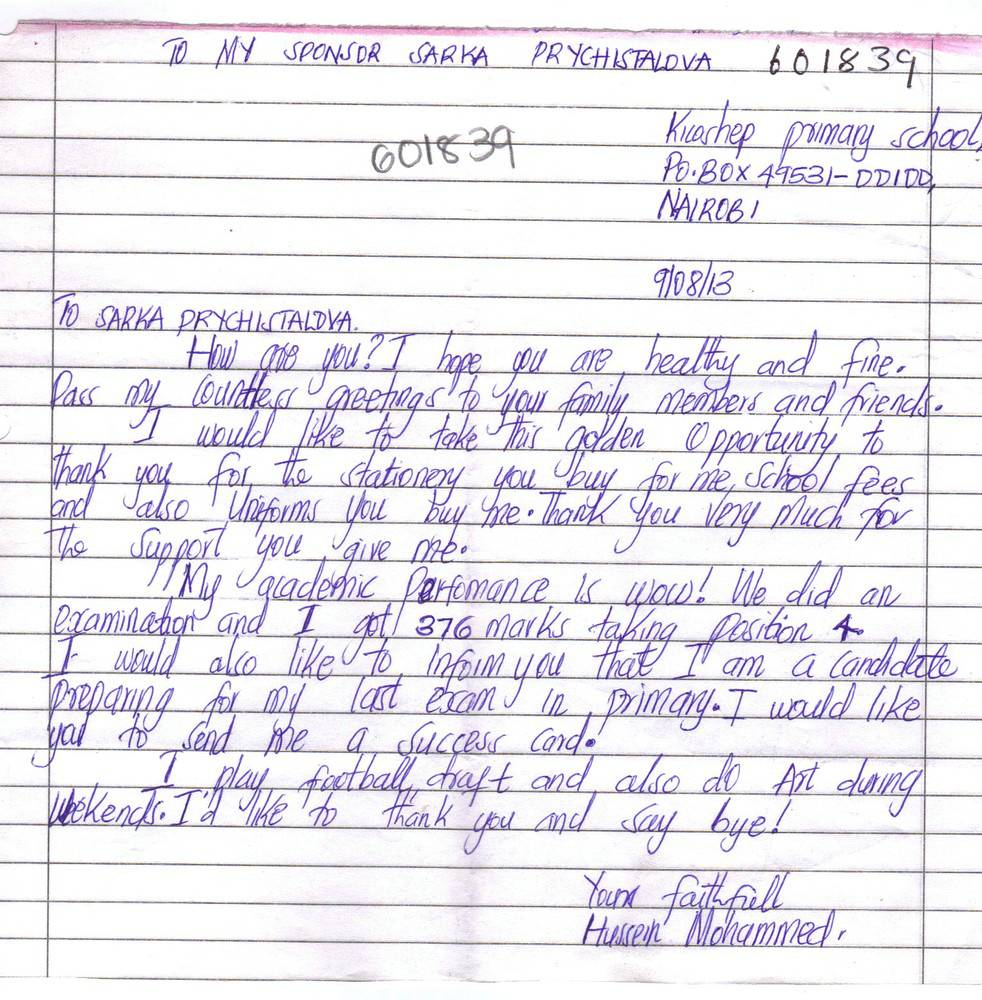 TO MY SPONSOR SARKA PRYCHISTALOVA 601839
601839
Kicoshep primary school,
P.O.BOX 49531-00100,
NAIROBI
9/08/13
TO SARKA PRYCHISTALOVA.
How are you? I hope you are healthy and fine.
Pass my countless greetings to your family members and friends.
I would like to take this golden opportunity to
thank you for the stationery you buy for me, school fees
and also uniforms you buy me. Thank you very much for
the support you give me.
My academic perfomance is wow! We did an
examination and I got 376 marks taking position 4.
I would also like to inform you that I am a candidate
preparing for my last exam in primary. I would like
you to send me a success card.
I play football, draft and also do Art during
weekends. I'd like to thank you and say bye!
Your faithfull
Hussein Mohammed.